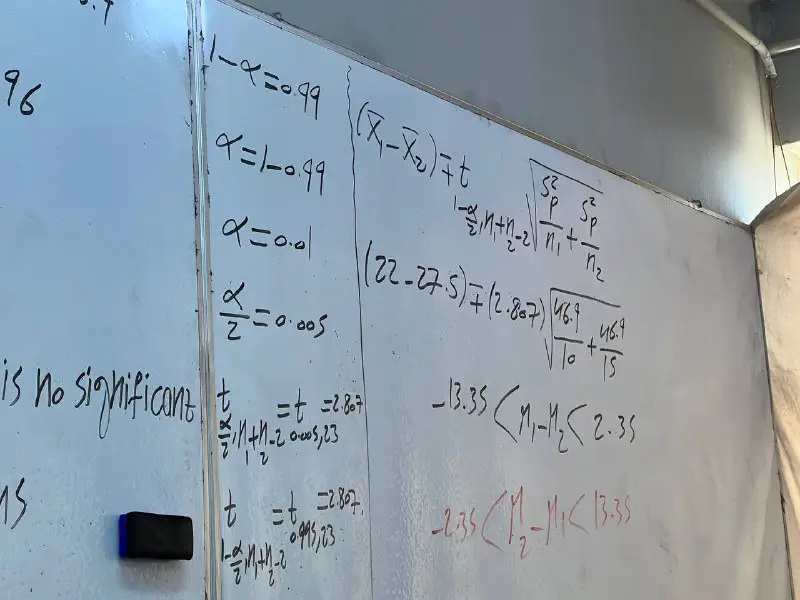 96
is no significant
1-α=0.99
α=1-0.99
α=0.01
α/2=0.005
t α/2, n₁+n₂-2 = t 0.005,23 =2.807
t 1-α/2, n₁+n₂-2 = t 0.995,23 =2.807.
(X̄₁-X̄₂)∓t 1-α/2, n₁+n₂-2 √(S²p/n₁+S²p/n₂)
(22-27.5)∓(2.807)√(46.9/10+46.9/15)
-13.35<μ₁-μ₂<2.35
-2.35<μ₂-μ₁<13.35